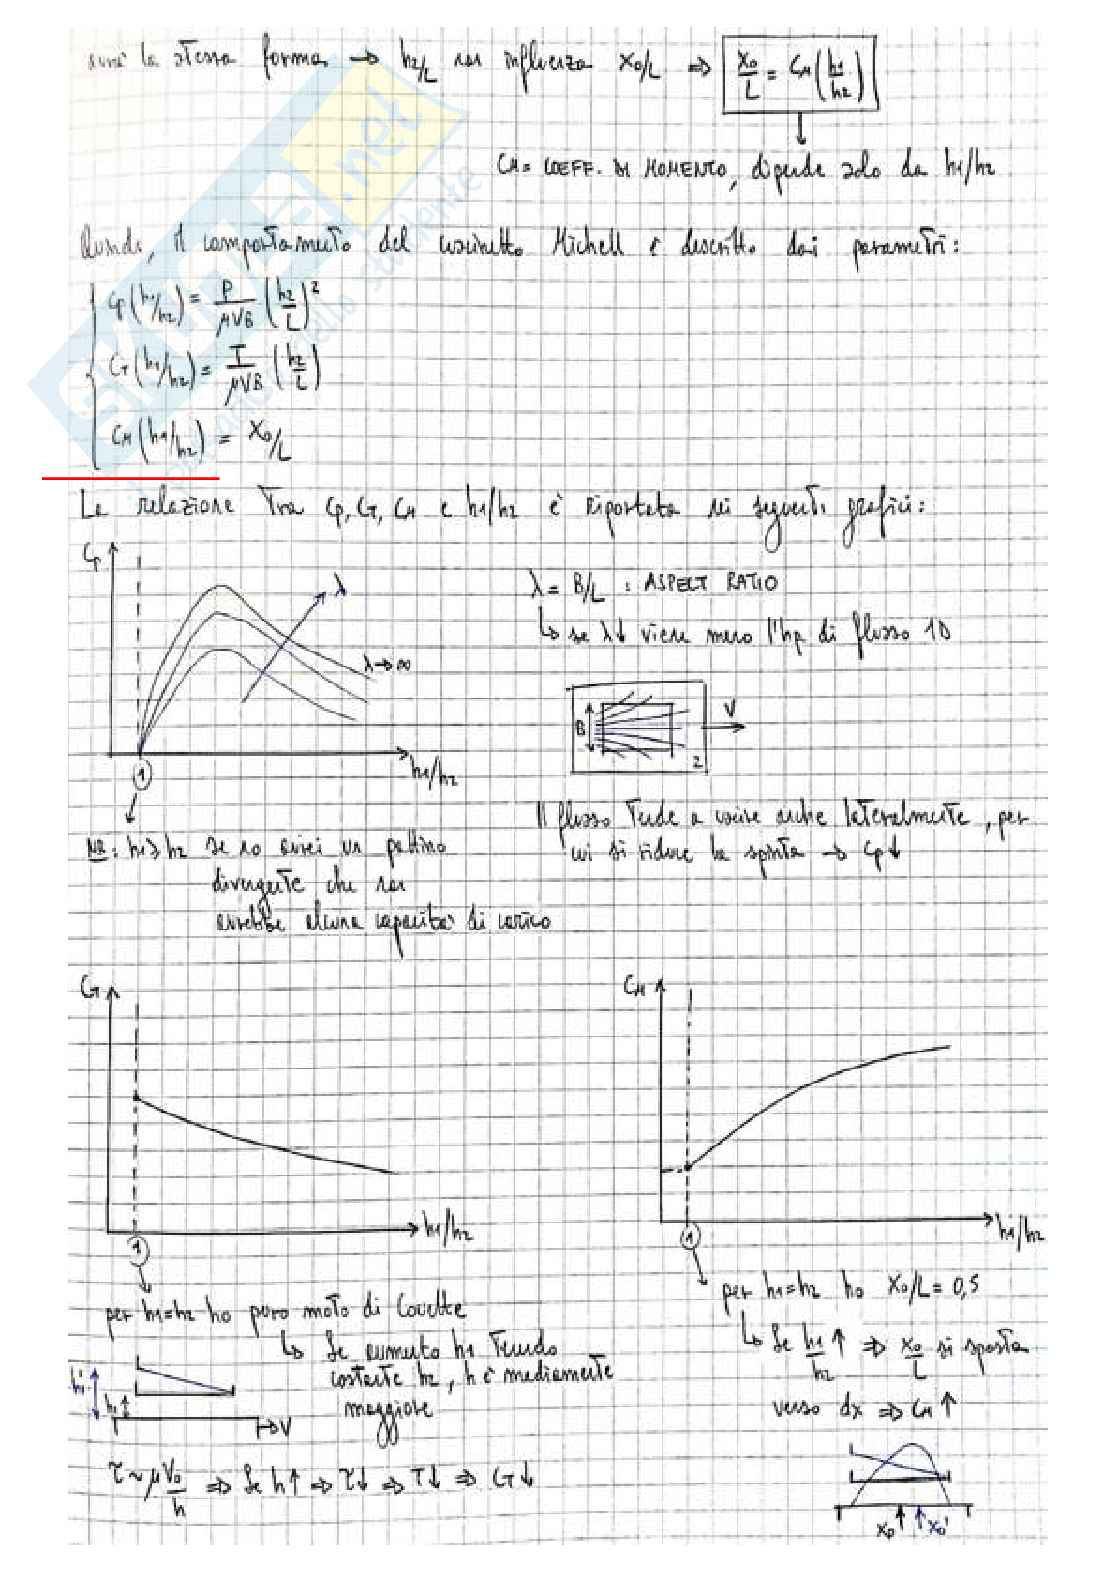 avrà la stessa forma → h2/L non influenza x0/L ⇒ x0/L = CM (h1/h2)
CM = COEFF. DI MOMENTO, dipende solo da h1/h2
Quindi, il comportamento del cuscinetto Michell è descritto dai parametri:
Cp (h1/h2) = P/μVB (h2/L)²
CT (h1/h2) = T/μVB (h2/L)
CM (h1/h2) = x0/L
La relazione tra Cp, CT, CM e h1/h2 è riportata nei seguenti grafici:
Cp
λ
λ→∞
h1/h2
1
λ = B/L : ASPECT RATIO
↳ se λ↓ viene meno l'hp di flusso 1D
B
V
2
Il flusso tende a uscire anche lateralmente, per
cui si riduce la spinta → Cp↓
NB: h1≥h2 se no avrei un pattino
divergente che non
avrebbe alcuna capacità di carico
CT
h1/h2
1
per h1=h2 ho puro moto di Couette
↳ Se aumento h1 tenendo
costante h2, h è mediamente
maggiore
h1'
h1
V
τ~μ V0/h ⇒ Se h↑ ⇒ τ↓ ⇒ T↓ ⇒ CT↓
CM
h1/h2
1
per h1=h2 ho x0/L = 0,5
↳ Se h1/h2 ↑ ⇒ x0/L si sposta
verso dx ⇒ CM↑
x0
x0'